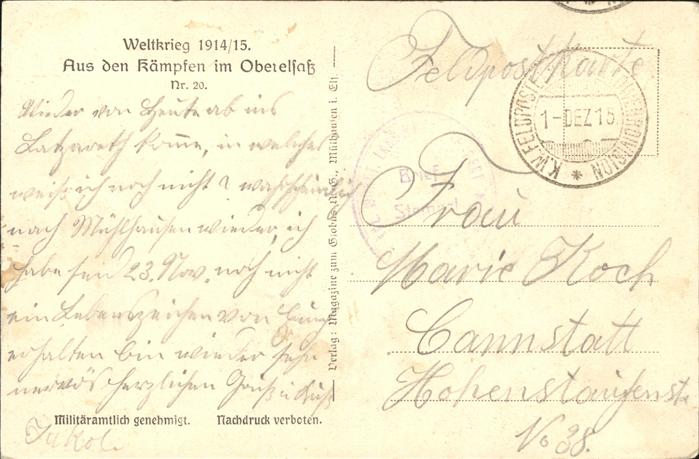 Weltkrieg 1914/15.
Aus den Kämpfen im Oberelsaß
Nr. 20.
Wieder von heute ab ins
Lazareth komme, in welches
weiß ich noch nicht? wahrscheinlich
nach Mühlhausen wieder, ich
habe seit 23. Nov. noch nicht
ein Lebenszeichen von Euch
erhalten bin wieder sehr
nervös herzlichen Gruß u. Kuß
Jakob
Militäramtlich genehmigt. Nachdruck verboten.
Verlag: Magazine zum Globus, Mülhausen i. Els.
Feldpostkarte
K.W. FELDPOST
1-DEZ 15
Brief
Stempel
Frau
Marie Koch
Cannstatt
Hohenstaufenstr.
No 38.